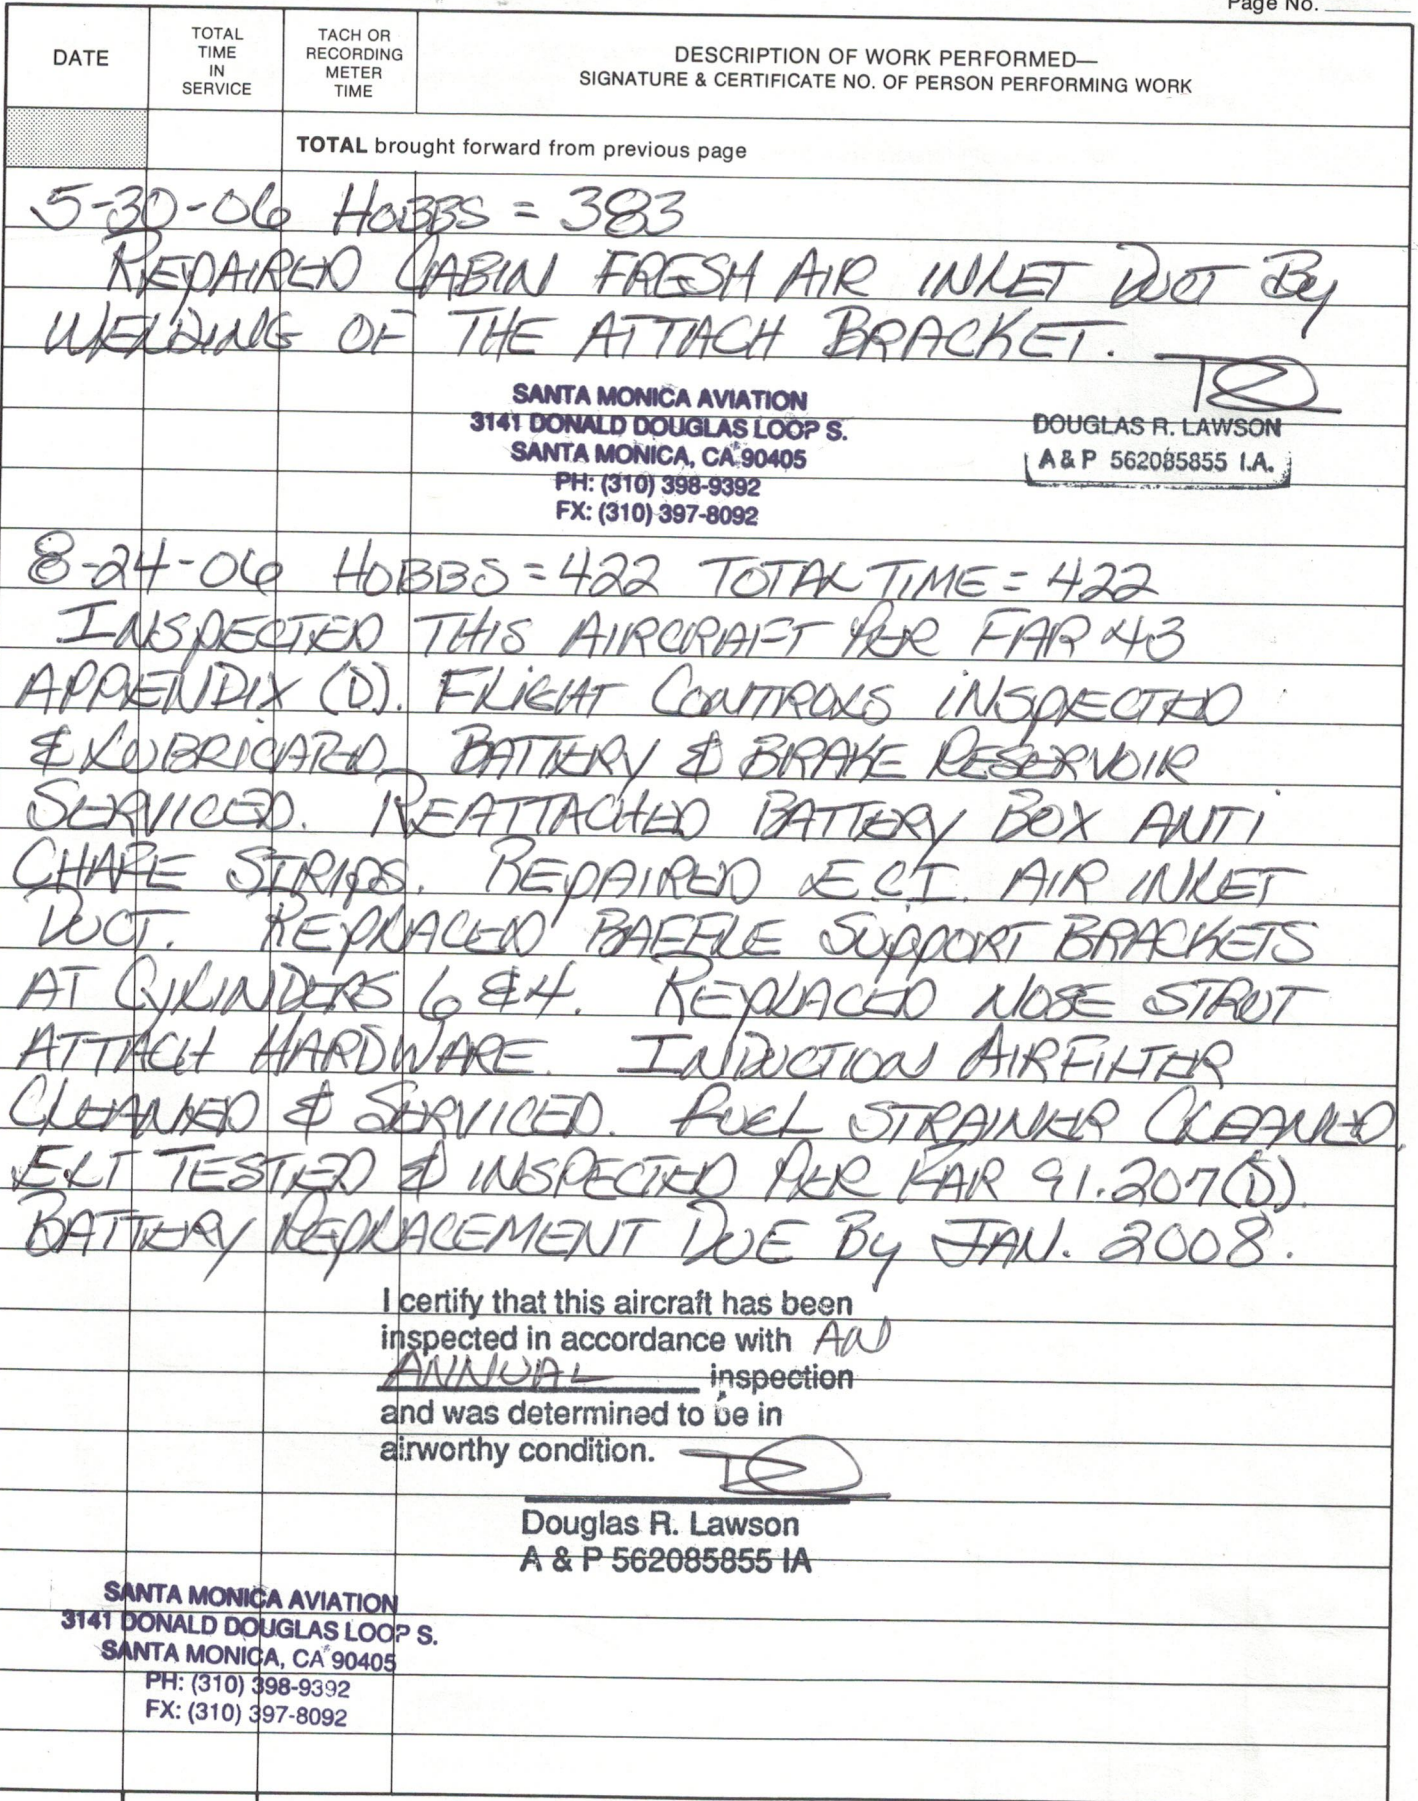 Page No.
DATE
TOTAL
TIME
IN
SERVICE
TACH OR
RECORDING
METER
TIME
DESCRIPTION OF WORK PERFORMED—
SIGNATURE & CERTIFICATE NO. OF PERSON PERFORMING WORK
TOTAL brought forward from previous page
5-30-06 HOBBS = 383
REPAIRED CABIN FRESH AIR INLET DUCT By
WELDING OF THE ATTACH BRACKET.
SANTA MONICA AVIATION
3141 DONALD DOUGLAS LOOP S.
SANTA MONICA, CA 90405
PH: (310) 398-9392
FX: (310) 397-8092
DOUGLAS R. LAWSON
A & P 562085855 I.A.
8-24-06 HOBBS = 422 TOTAL TIME = 422
INSPECTED THIS AIRCRAFT PER FAR 43
APPENDIX (D). FLIGHT CONTROLS INSPECTED
& LUBRICATED. BATTERY & BRAKE RESERVOIR
SERVICED. REATTACHED BATTERY BOX ANTI
CHAFE STRIPS. REPAIRED E.C.I. AIR INLET
DUCT. REPLACED BAFFLE SUPPORT BRACKETS
AT CYLINDERS 6 & 4. REPLACED NOSE STRUT
ATTACH HARDWARE. INDUCTION AIRFILTER
CLEANED & SERVICED. FUEL STRAINER CLEANED.
ELT TESTED & INSPECTED PER FAR 91.207(D).
BATTERY REPLACEMENT DUE By JAN. 2008.
I certify that this aircraft has been
inspected in accordance with AN
ANNUAL inspection
and was determined to be in
airworthy condition.
Douglas R. Lawson
A & P 562085855 IA
SANTA MONICA AVIATION
3141 DONALD DOUGLAS LOOP S.
SANTA MONICA, CA 90405
PH: (310) 398-9392
FX: (310) 397-8092